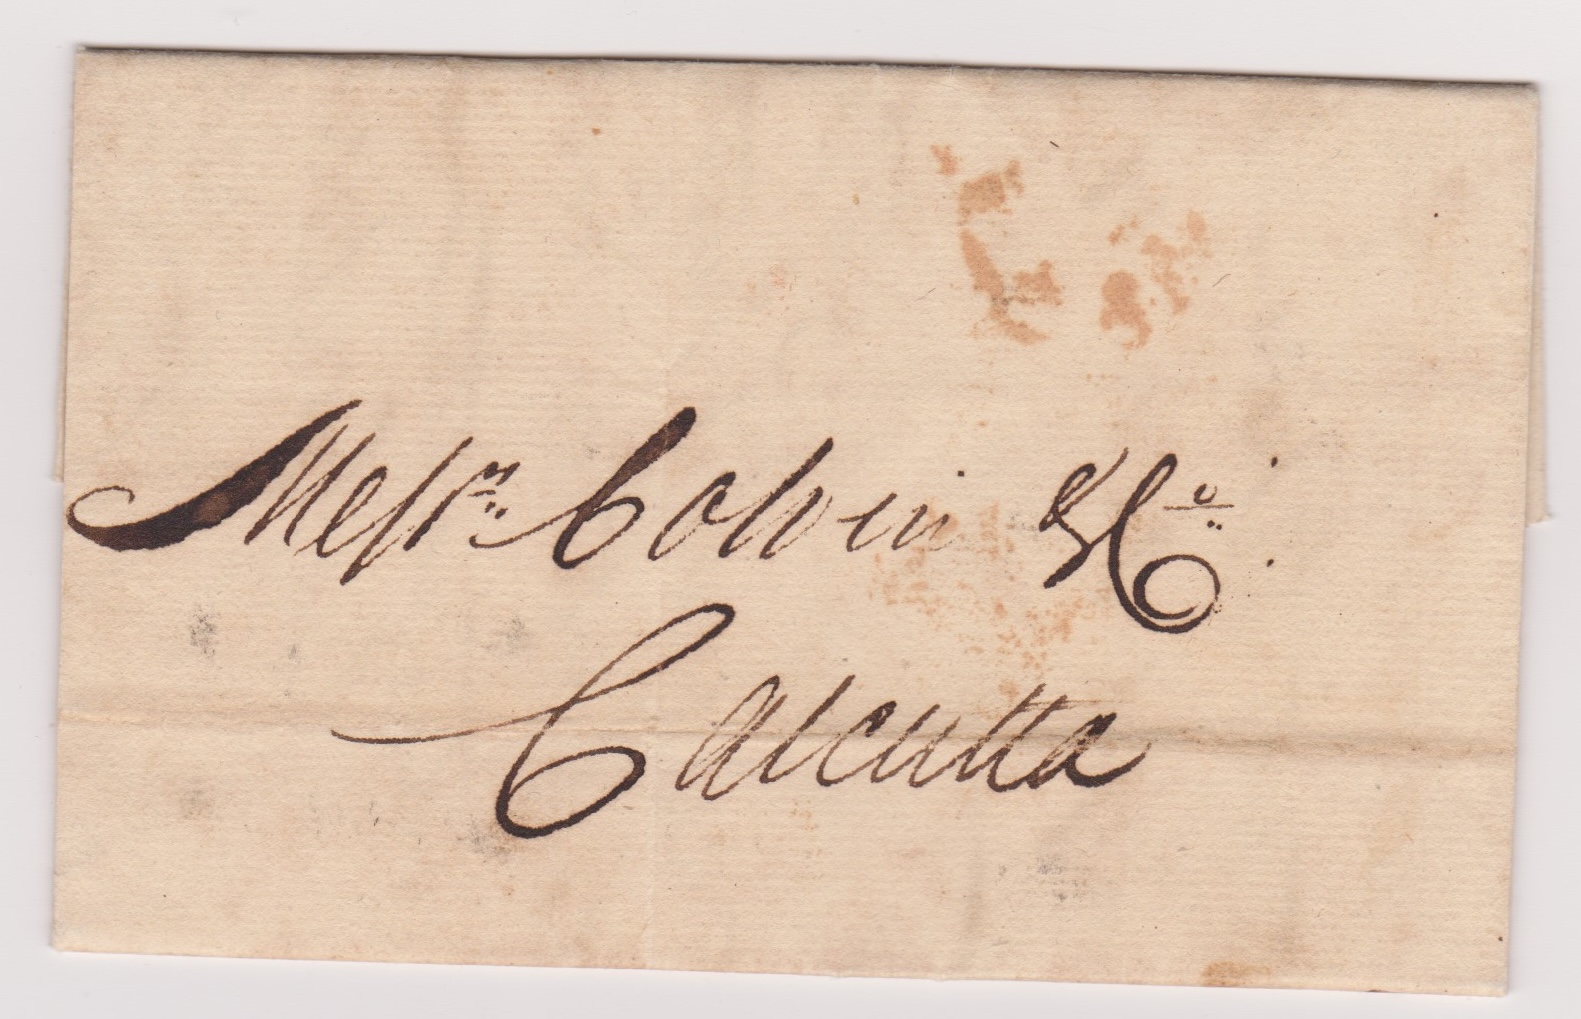 Messrs. Colvin & Co.
Calcutta